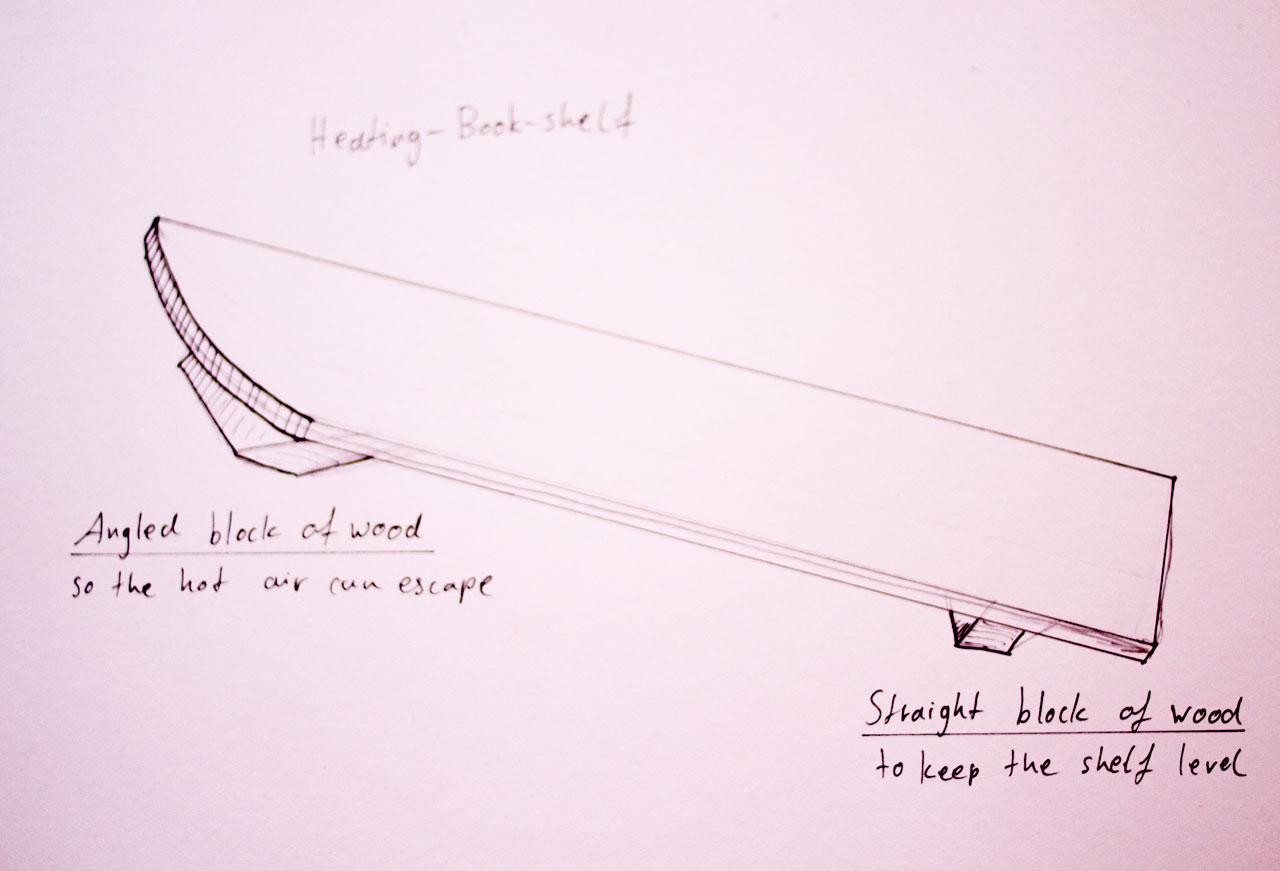 Heating-Book-shelf
Angled block of wood
so the hot air can escape
Straight block of wood
to keep the shelf level